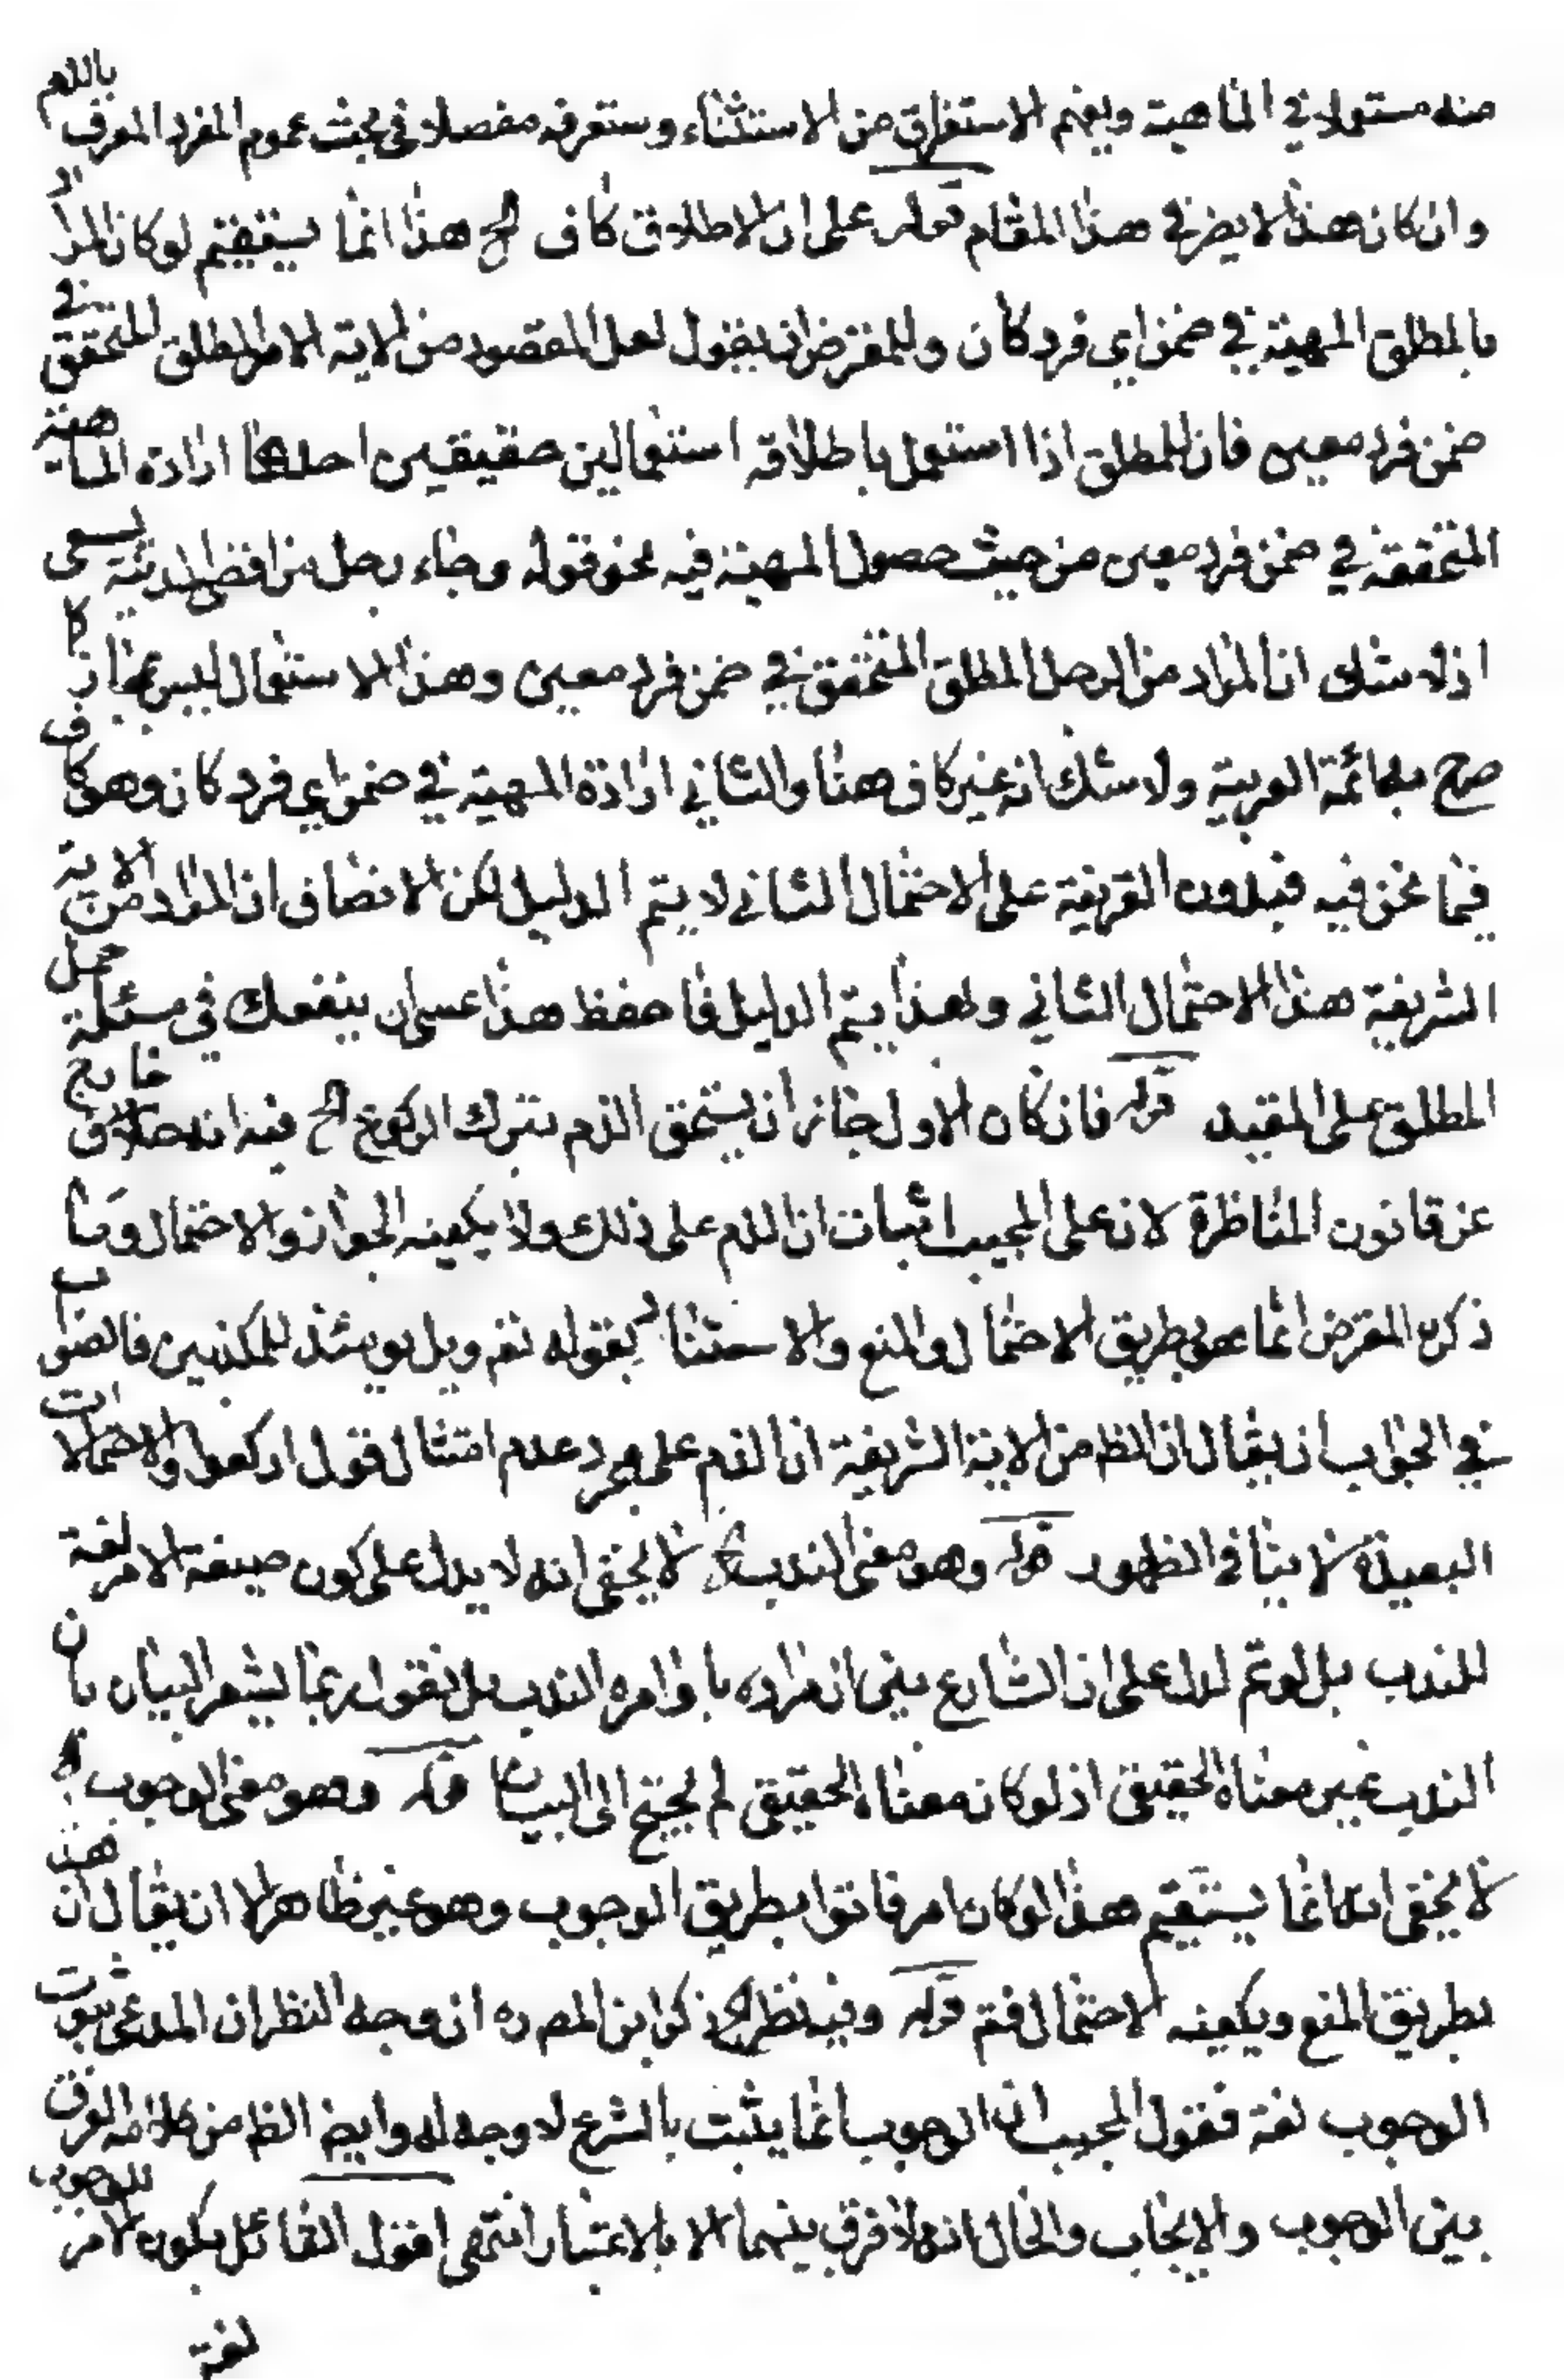 منه مستعملا في الماهية ويفهم الاستغراق من الاستثناء وستعرفه مفصلا في بحث عموم المفرد المعرف باللام
وان كان هذا لا يضر في هذا المقام قوله على ان الاطلاق كاف الخ هذا انما يستقيم لو كان المراد
بالمطلق المهية في ضمن اي فرد كان وللمعترض ان يقول لعل المقصود من الاية الامر المطلق المتحقق في
ضمن فرد معين فان للمطلق اذا استعمل باطلاقه استعمالين حقيقيين احدهما ارادة الماهية
المتحققة في ضمن فرد معين من حيث حصول المهية فيه نحو قوله وجاء رجل من اقصى المدينة يسعى
اذ لا شك ان المراد من الرجل المطلق المتحقق في ضمن فرد معين وهذا الاستعمال ليس بمجاز كا
صرح به ائمة العربية ولا شك انه غير كاف هنا والثاني ارادة المهية في ضمن اي فرد كان وهو كاف
فيما نحن فيه فبدون القرينة على الاحتمال الثاني لا يتم الدليل لكن الانصاف ان المراد من الاية
الشريفة هذا الاحتمال الثاني ولهذا يتم الدليل فاحفظ هذا عسى ان ينفعك في مسئلة حمل
المطلق على المقيد قوله فان كان الاول جاز ان يستحق الذم بترك الركوع الخ فيه انه خارج
عن قانون المناظرة لان على المجيب اثبات ان الذم على ذلك ولا يكفيه الجواز والاحتمال وما
ذكره المعترض انما هو بطريق الاحتمال والمنع والاستثناء بقوله تعم ويل يومئذ للمكذبين فالصواب
في الجواب ان يقال ان الظ من الاية الشريفة ان الذم على مجرد عدم امتثال قول اركعوا والاحتمالات
البعيدة لا ينافي الظهور قوله وهو معنى الندب الخ لا يخفى انه لا يدل على كون صيغة الامر لغة
للندب بل لو تم لدل على ان الشارع بين ان مراده باوامره الندب بل نقول ربما يشعر البيان بان
الندب غير معناه الحقيقي اذ لو كان معناه الحقيقي لم يحتج الى البيان قوله وهو معنى الوجوب
لا يخفى انه انما يستقيم هذا لو كان امر فاتوا بطريق الوجوب وهو غير ظاهر الا ان يقال ان هذا
بطريق المنع ويكفيه الاحتمال فتم قوله وفيه نظر الخ ذكر ابن المص ره ان وجه النظر ان المدعى ثبوت
الوجوب لغة فقول المجيب ان الوجوب انما يثبت بالشرع لا وجه له وايض الظ من كلامه الفرق
بين الوجوب والايجاب والحال انه لا فرق بينهما الا بالاعتبار انتهى اقول القائل بكون الامر للوجوب
لغة